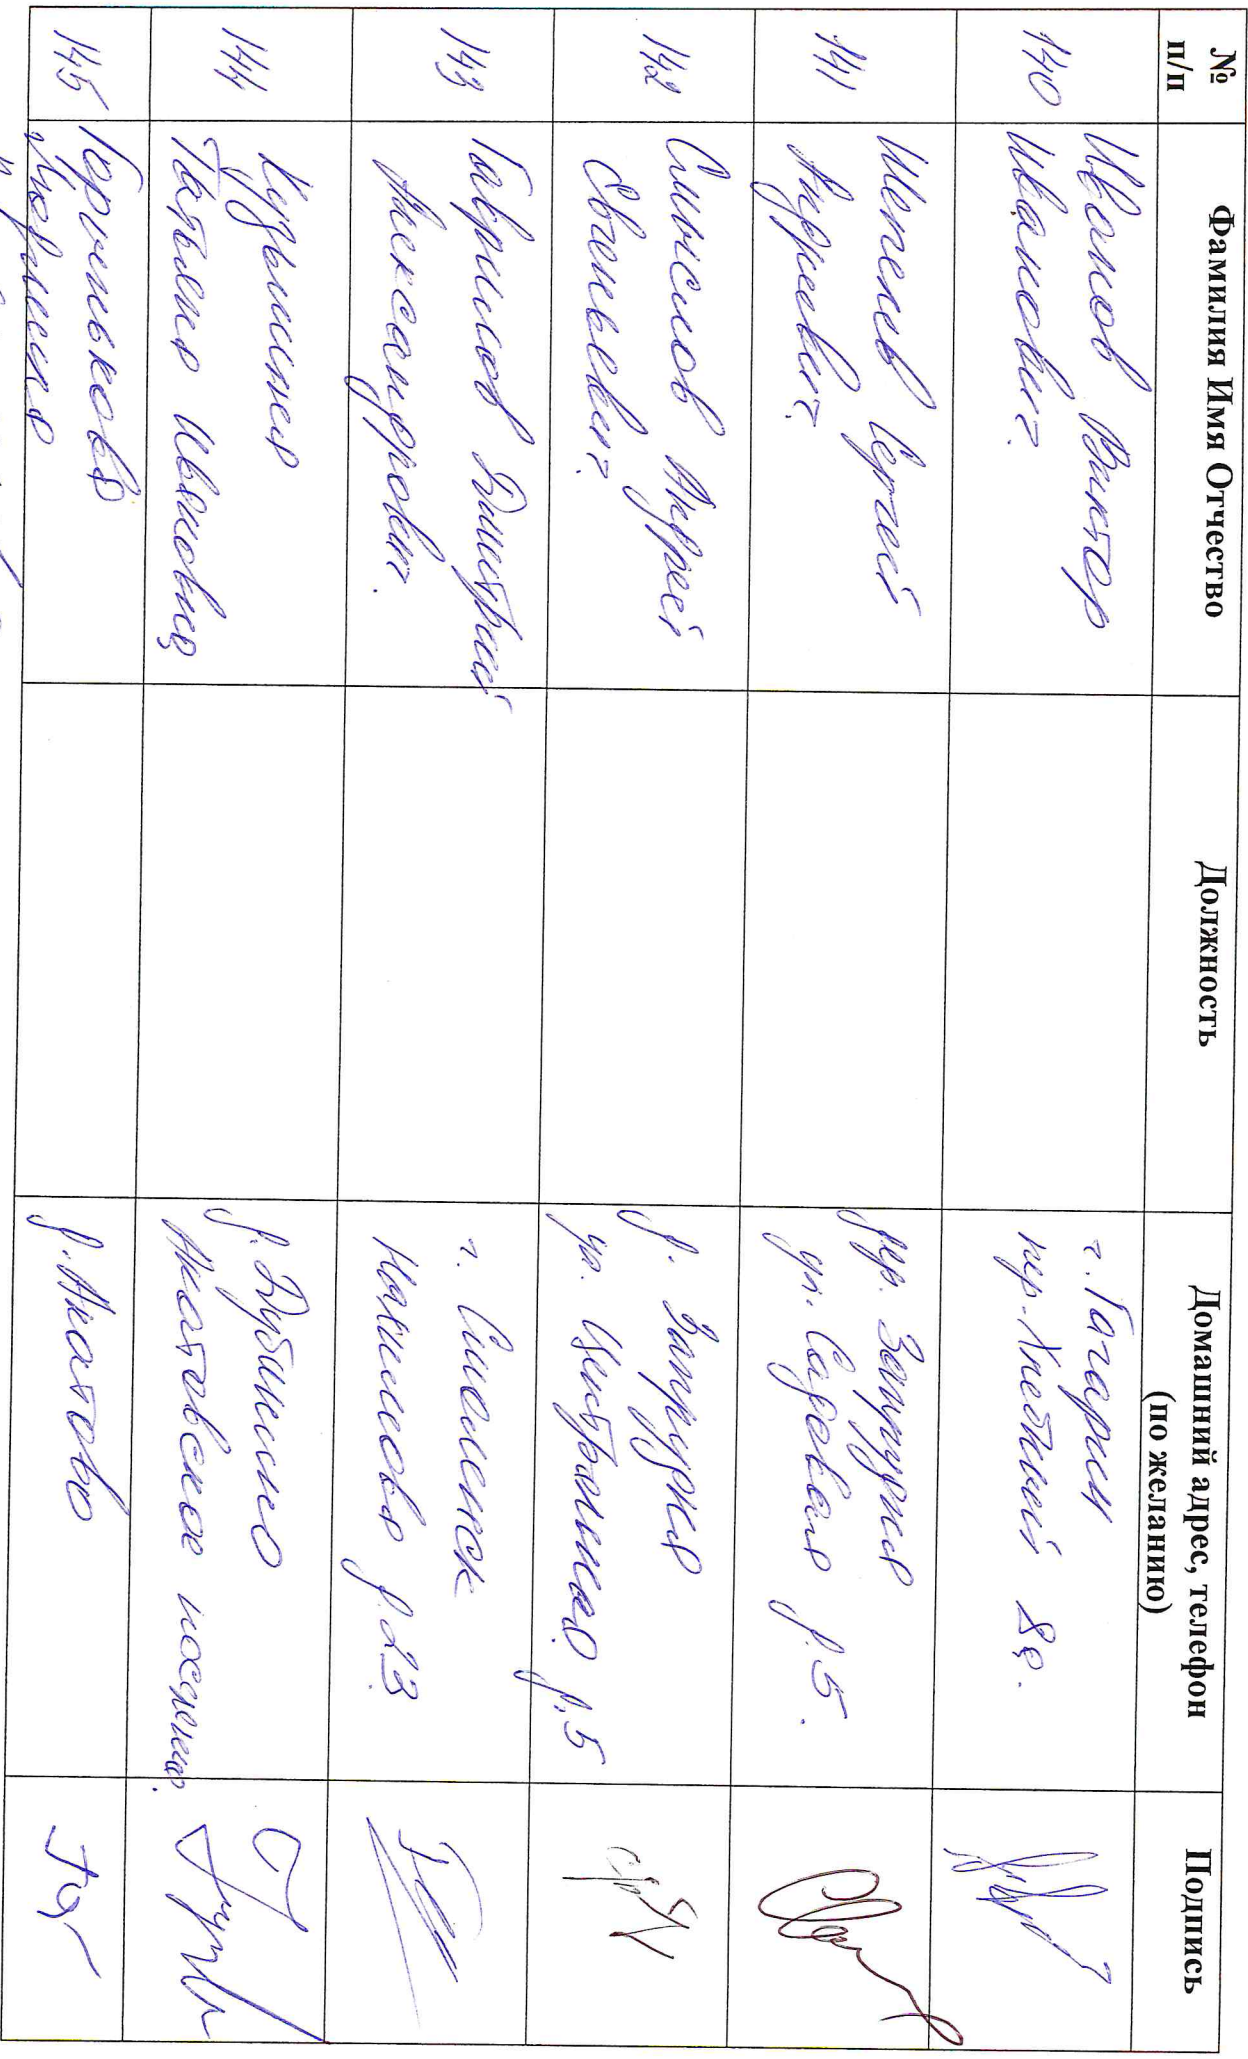 № п/п
Фамилия Имя Отчество
Должность
Домашний адрес, телефон
(по желанию)
Подпись
140
Иванов Виктор
Иванович.
г. Гагарин
пер. Хлебный 8а.
141
Шепелев Сергей
Андреевич.
дер. Запрудня
ул. Садовая д. 5.
142
Смыслов Андрей
Евгеньевич.
д. Запрудня
ул. Центральная д. 5
143
Гаврилов Дмитрий
Александрович.
г. Смоленск
Нахимова д. 23.
144
Кузьмина
Татьяна Ивановна
д. Дубинино
Акатовское поселение.
145
Горшкова
д. Акатово